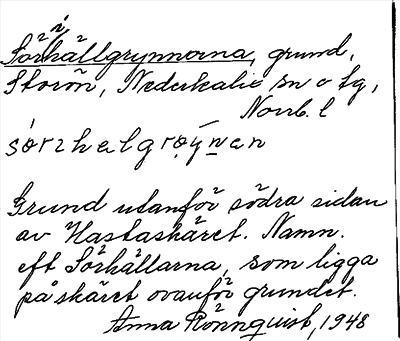 Sörhällgrynnorna, grund,
Storön, Nederkalix sn o tg,
Norrb. l
sørzhalgrøýnan
Grund utanför södra sidan
av Hastaskäret. Namn.
eft Sörhällarna, som ligga
på skäret ovanför grundet.
Anna Rönnquist, 1948